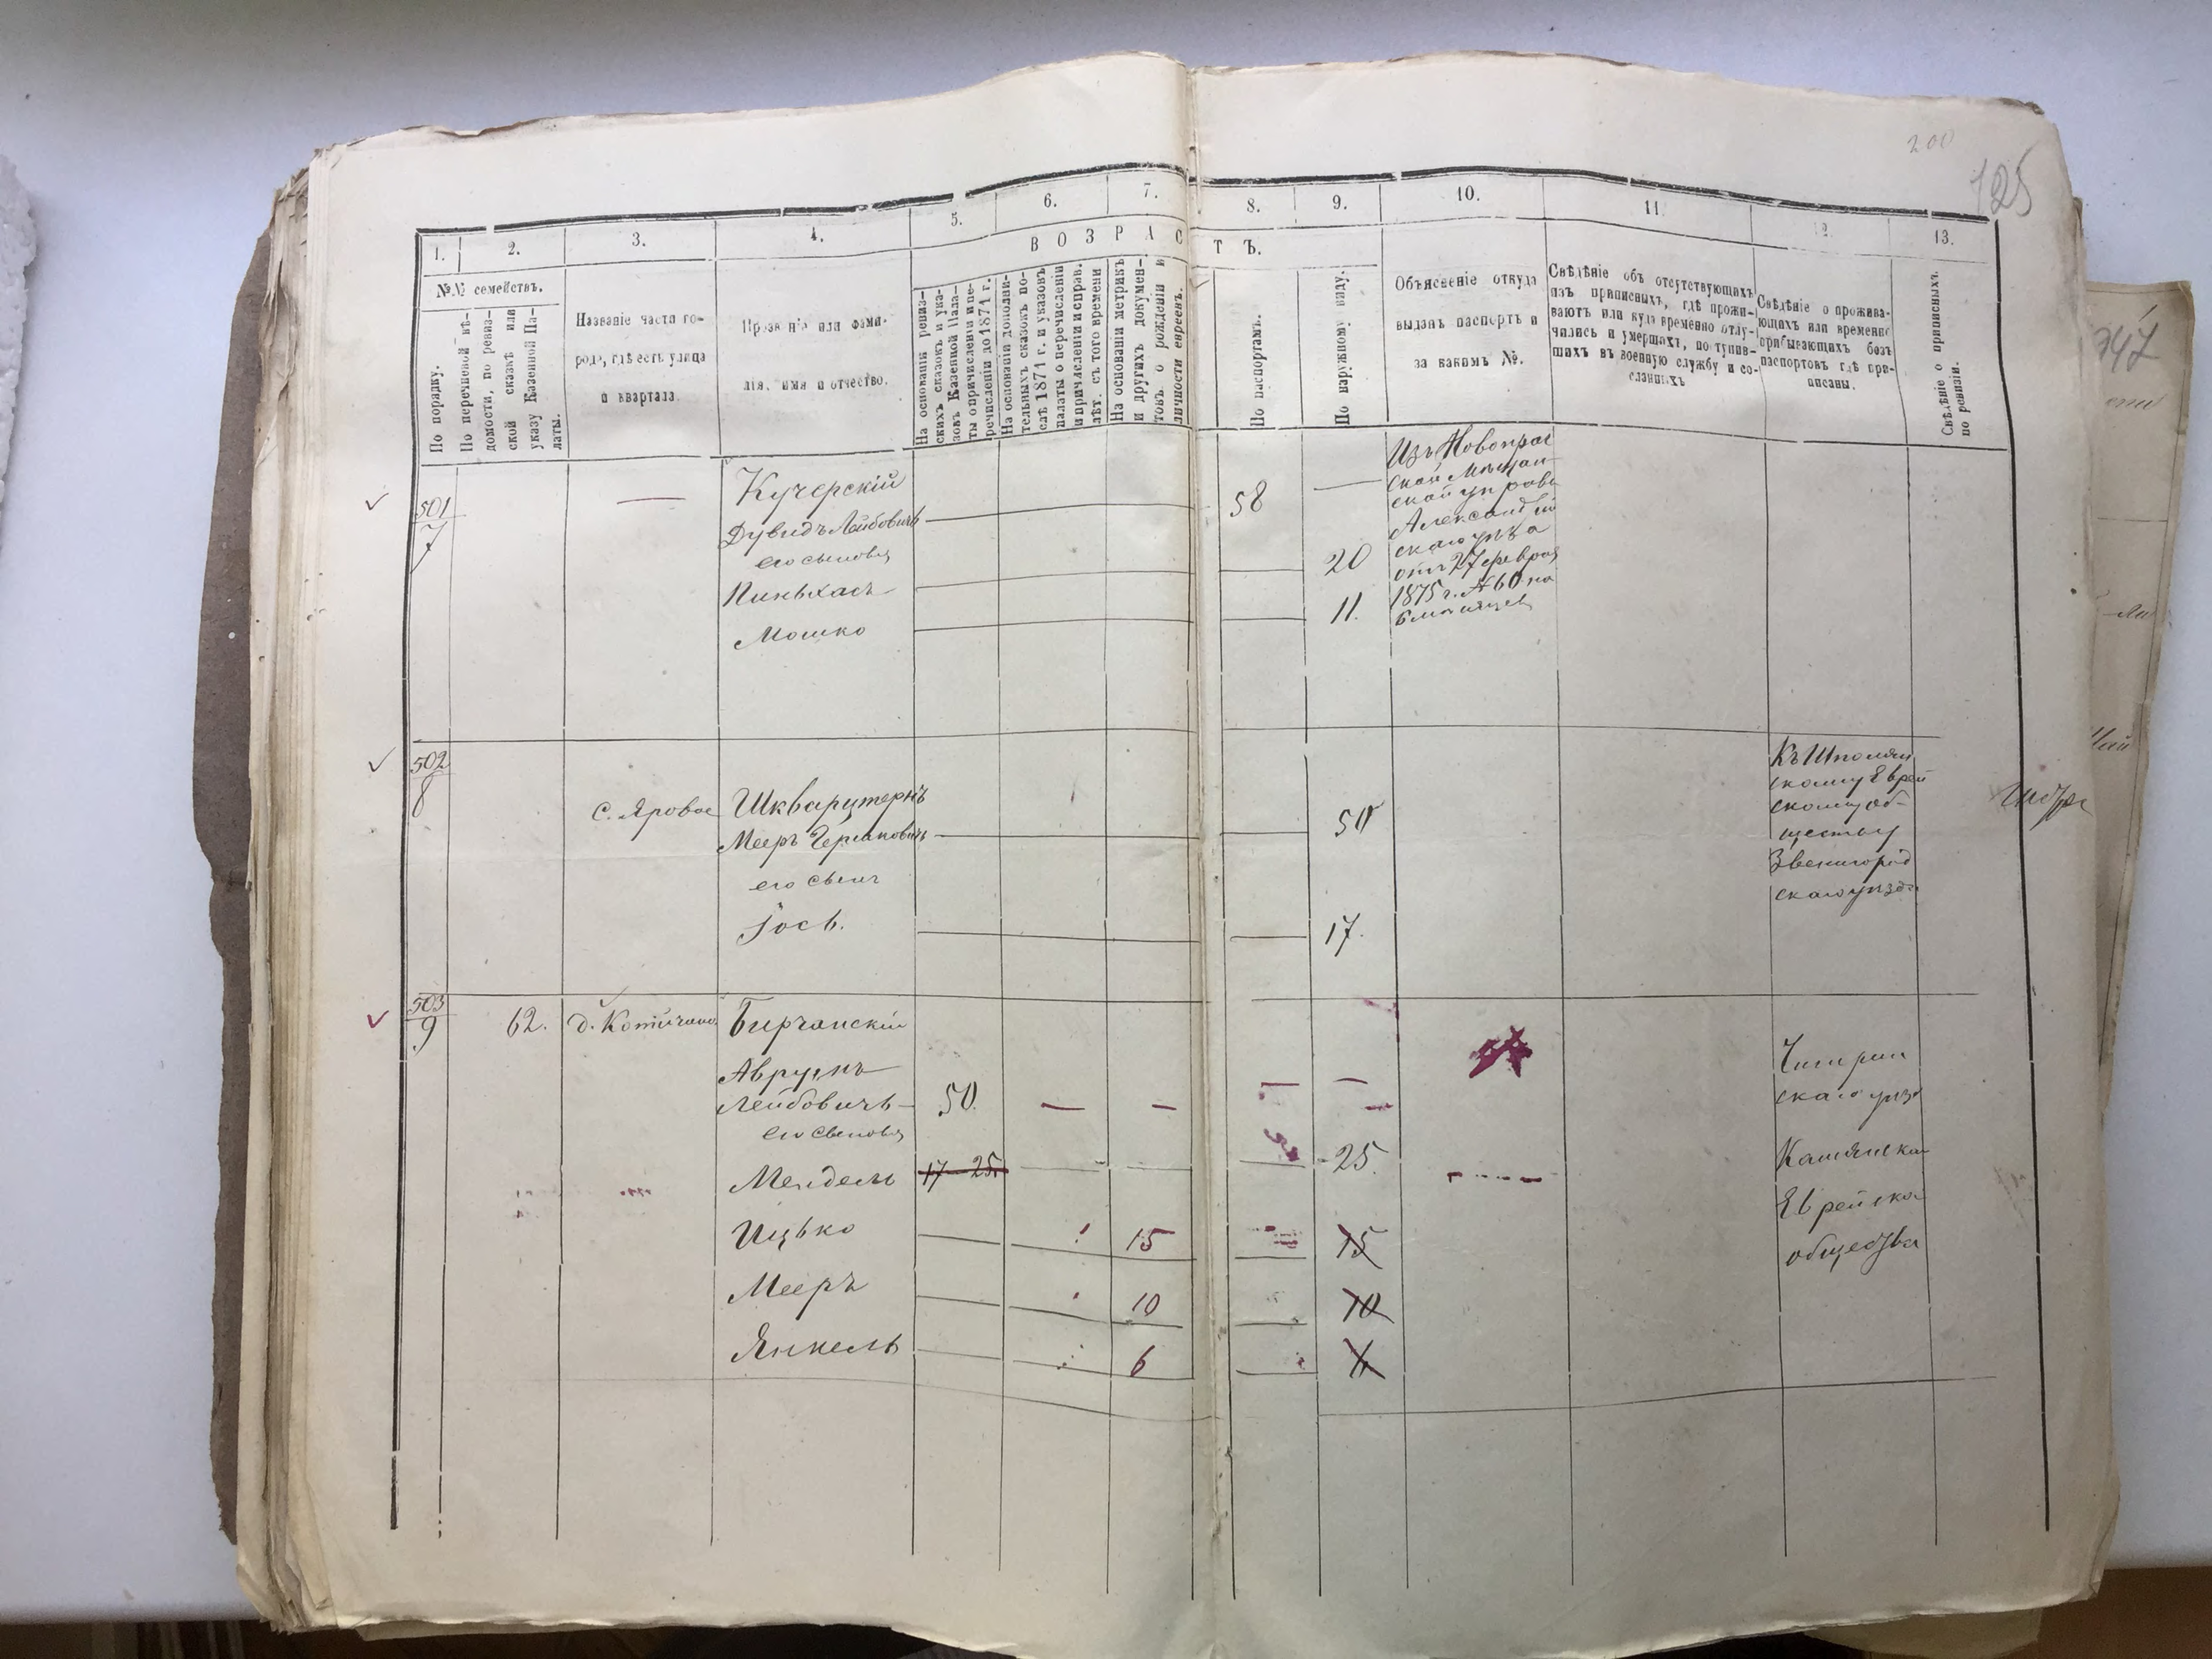 200
125
1.
2.
3.
4.
5.
6.
7.
8.
9.
10.
11.
12.
13.
В О З Р А С Т Ъ.
№№ семействъ.
По порядку.
По перечневой вѣ-
домости, по ревиз-
ской сказкѣ или
указу Казенной Па-
латы.
Названіе части го-
рода, гдѣ есть улица
и квартала
Прозваніе или фами-
лія, имя и отчество.
На основаніи ревиз-
скихъ сказокъ и ука-
зовъ Казенной Пала-
ты о причисленіи и пе-
речисленіи до 1871 г.
На основаніи дополни-
тельныхъ сказокъ по-
слѣ 1871 г. и указовъ
палаты о перечисленіи
и причисленіи и справ.
лѣт. съ того времени
На основаніи метрикъ
и другихъ докумен-
товъ о рожденіи и
личности евреевъ.
По паспортамъ.
По наружному виду.
Объясненіе откуда
выданъ паспортъ и
за какимъ №.
Свѣдѣніе объ отсутствующихъ
изъ приписныхъ, гдѣ прожи-
ваютъ или куда временно отлу-
чились и умершихъ, поступив-
шихъ въ военную службу и со-
сланныхъ
Свѣдѣніе о прожива-
ющихъ или временно
прибывающихъ безъ
паспортовъ гдѣ при-
писаны.
Свѣдѣніе о приписныхъ
по ревизіи.
501
7
Кучерскій
Дувидъ Лейбовичъ
его сыновья
Пиньхасъ
Мошко
58
20
11.
Изъ Новопраг
ской Мѣщан
ской управы
Александрій
скаго уѣзда
отъ 27 февраля
1875 г. № 60 на
6 мѣсяцев
502
8
с. Яровое
Шкварцтернъ
Мееръ Герш­ковичъ
его сынъ
Іось.
50
17.
Къ Шполян
скому Еврей
скому об-
ществу
Звенигород
скаго уѣзда
503
9
62.
д.
Бирчанскій
Аврумъ
Лейбовичъ
его сыновья
Мендель
Ицько
Мееръ
Янкель
50.
17 25.
25.
15
15
10
10
6
Чигрин
скаго уѣзд
Еврейска
общества
947